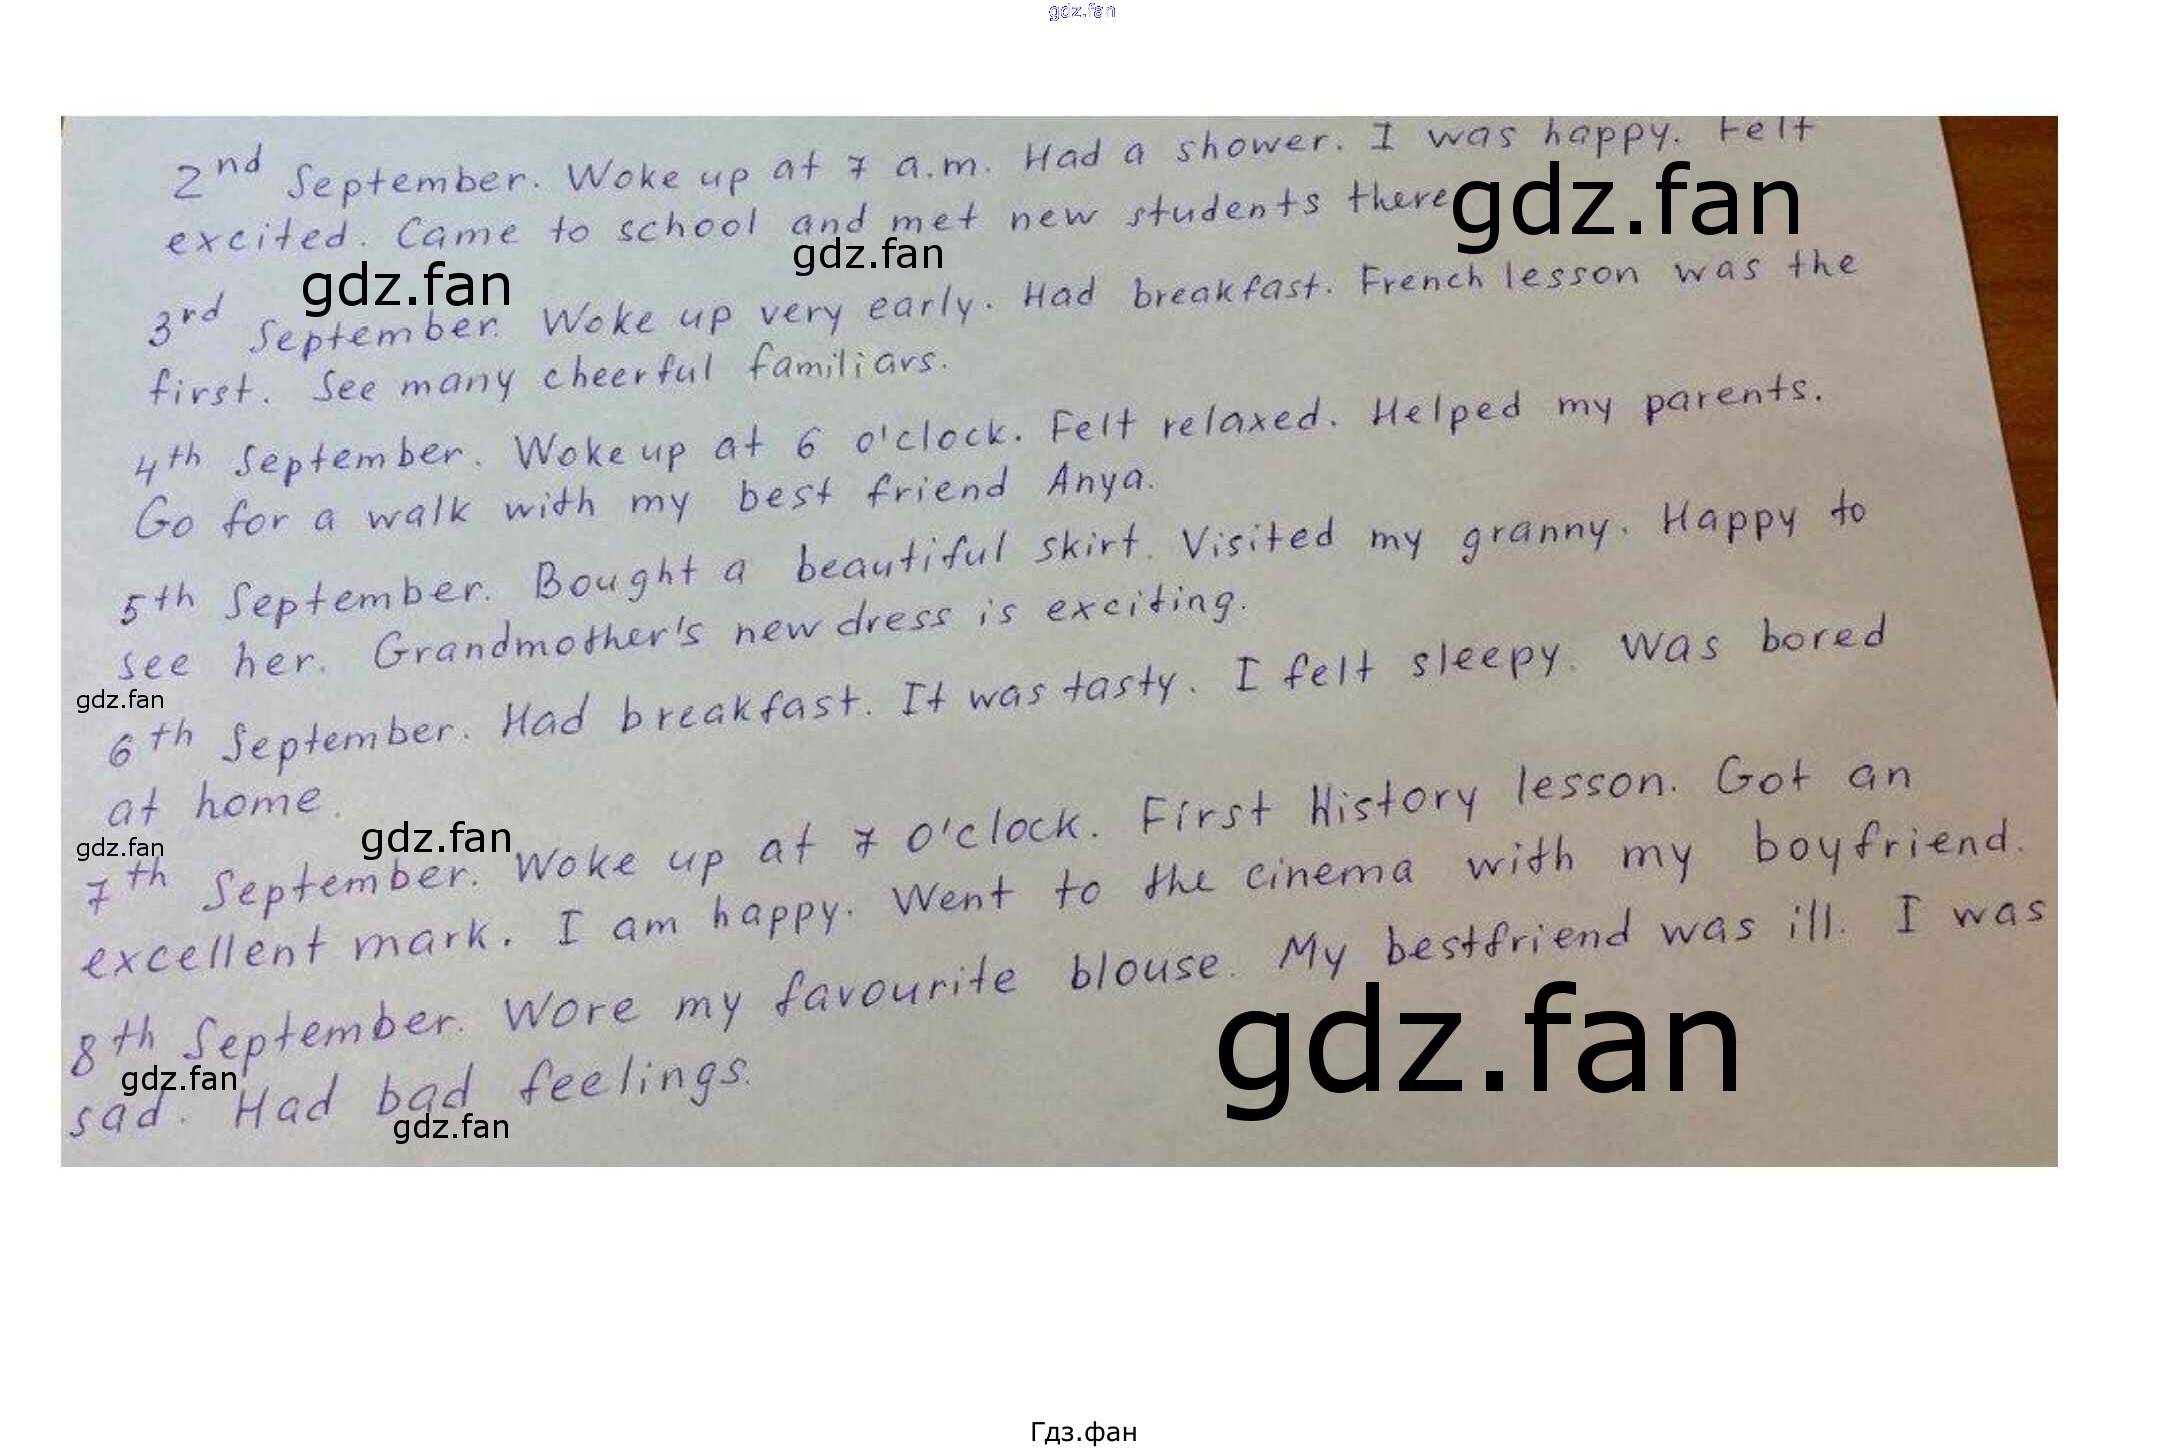 gdz.fan
2nd September. Woke up at 7 a.m. Had a shower. I was happy. Felt
excited. Came to school and met new students there
gdz.fan
gdz.fan
gdz.fan
3rd September. Woke up very early. Had breakfast. French lesson was the
first. See many cheerful familiars.
4th September. Woke up at 6 o'clock. Felt relaxed. Helped my parents.
Go for a walk with my best friend Anya.
5th September. Bought a beautiful skirt. Visited my granny. Happy to
see her. Grandmother's new dress is exciting.
gdz.fan
6th September. Had breakfast. It was tasty. I felt sleepy. Was bored
at home.
gdz.fan
gdz.fan
7th September. Woke up at 7 o'clock. First History lesson. Got an
excellent mark. I am happy. Went to the cinema with my boyfriend.
8th September. Wore my favourite blouse. My bestfriend was ill. I was
gdz.fan
gdz.fan
sad. Had bad feelings.
gdz.fan
Гдз.фан